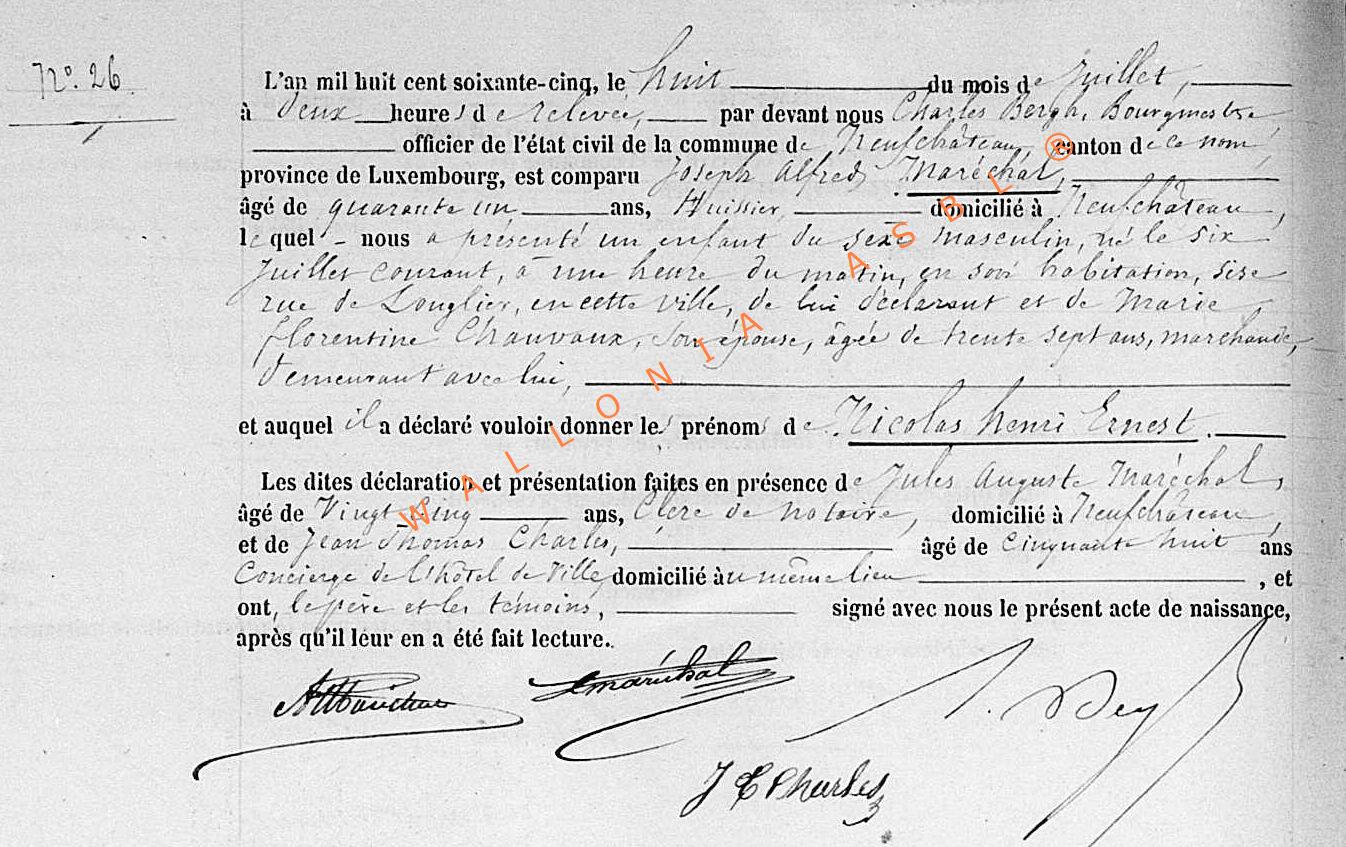 N° 26
L'an mil huit cent soixante-cinq, le huit du mois de Juillet,
à deux heures de relevée, par devant nous Charles Bergh, Bourgmestre
officier de l'état civil de la commune de Neufchâteau, canton de ce nom,
province de Luxembourg, est comparu Joseph Alfred Maréchal,
âgé de quarante un ans, Huissier, domicilié à Neufchâteau,
lequel nous a présenté un enfant du sexe masculin, né le six
Juillet courant, à une heure du matin, en son habitation, sise
rue de Longlier, en cette ville, de lui déclarant et de Marie
florentine Chauvaux, son épouse, âgée de trente sept ans, marchande,
demeurant avec lui,
et auquel il a déclaré vouloir donner les prénoms de Nicolas henri Ernest.
Les dites déclaration et présentation faites en présence de Jules Auguste Maréchal,
âgé de Vingt-Cinq ans, Clerc de notaire, domicilié à Neufchâteau,
et de Jean Thomas Charles, âgé de Cinquante huit ans
Concierge de l'hôtel de Ville, domicilié au même lieu, et
ont, le père et les témoins, signé avec nous le présent acte de naissance,
après qu'il leur en a été fait lecture.
Maréchal
J T Charles
WALLONIA ASBL ®